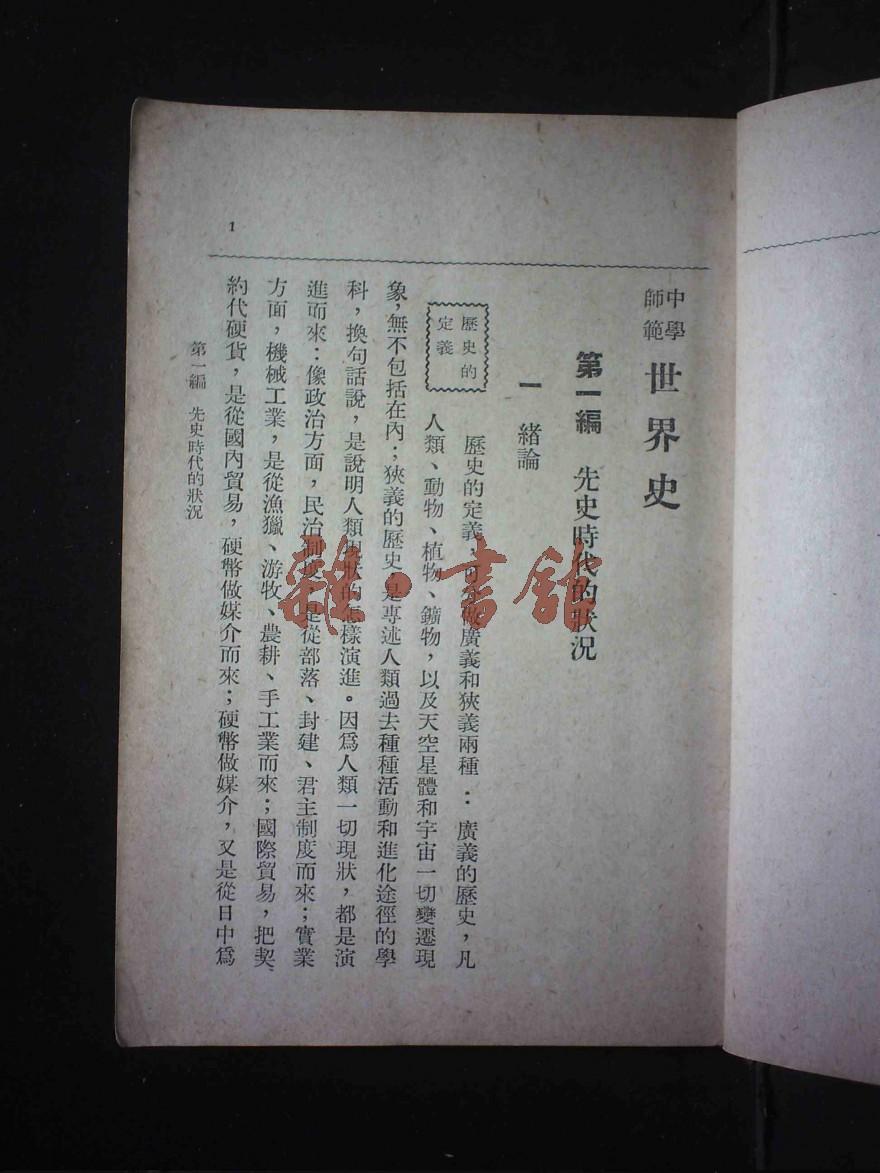 中學
師範
世界史
第一編 先史時代的狀況
一 緒論
歷史的
定義
歷史的定義，做廣義和狹義兩種：廣義的歷史，凡
人類、動物、植物、鑛物，以及天空星體和宇宙一切變遷現
象，無不包括在內；狹義的歷史，是專述人類過去種種活動和進化途徑的學
科，換句話說，是說明人類現狀的怎樣演進。因爲人類一切現狀，都是演
進而來：像政治方面，民治制度，是從部落、封建、君主制度而來；實業
方面，機械工業，是從漁獵、游牧、農耕、手工業而來；國際貿易，把契
約代硬貨，是從國內貿易，硬幣做媒介而來；硬幣做媒介，又是從日中爲
第一編 先史時代的狀況
1
雜·書館